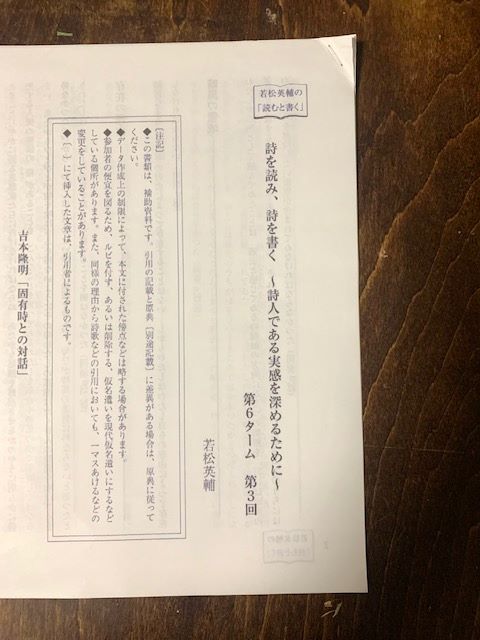 若松英輔の
「読むと書く」
詩を読み、詩を書く　～詩人である実感を深めるために～
第６ターム　第３回
若松英輔
〔注記〕
◆この書類は、補助資料です。引用の記載と原典〔別途記載〕に差異がある場合は、原典に従って
ください。
◆データ作成上の制限によって、本文に付された傍点などは略する場合があります。
◆参加者の便宜を図るため、ルビを付す、あるいは削除する、仮名遣いを現代仮名遣いにするなど
している個所があります。また、同様の理由から詩歌などの引用においても、一マスあけるなどの
変更をしていることがあります。
◆〔　〕にて挿入した文章は、引用者によるものです。
吉本隆明「固有時との対話」